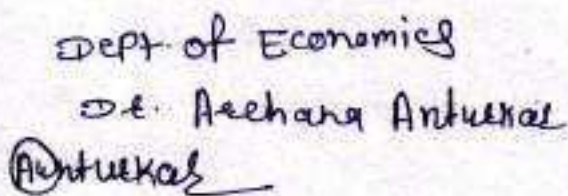 Dept. of Economics
Dr. Archana Anturkar
Aanturkar